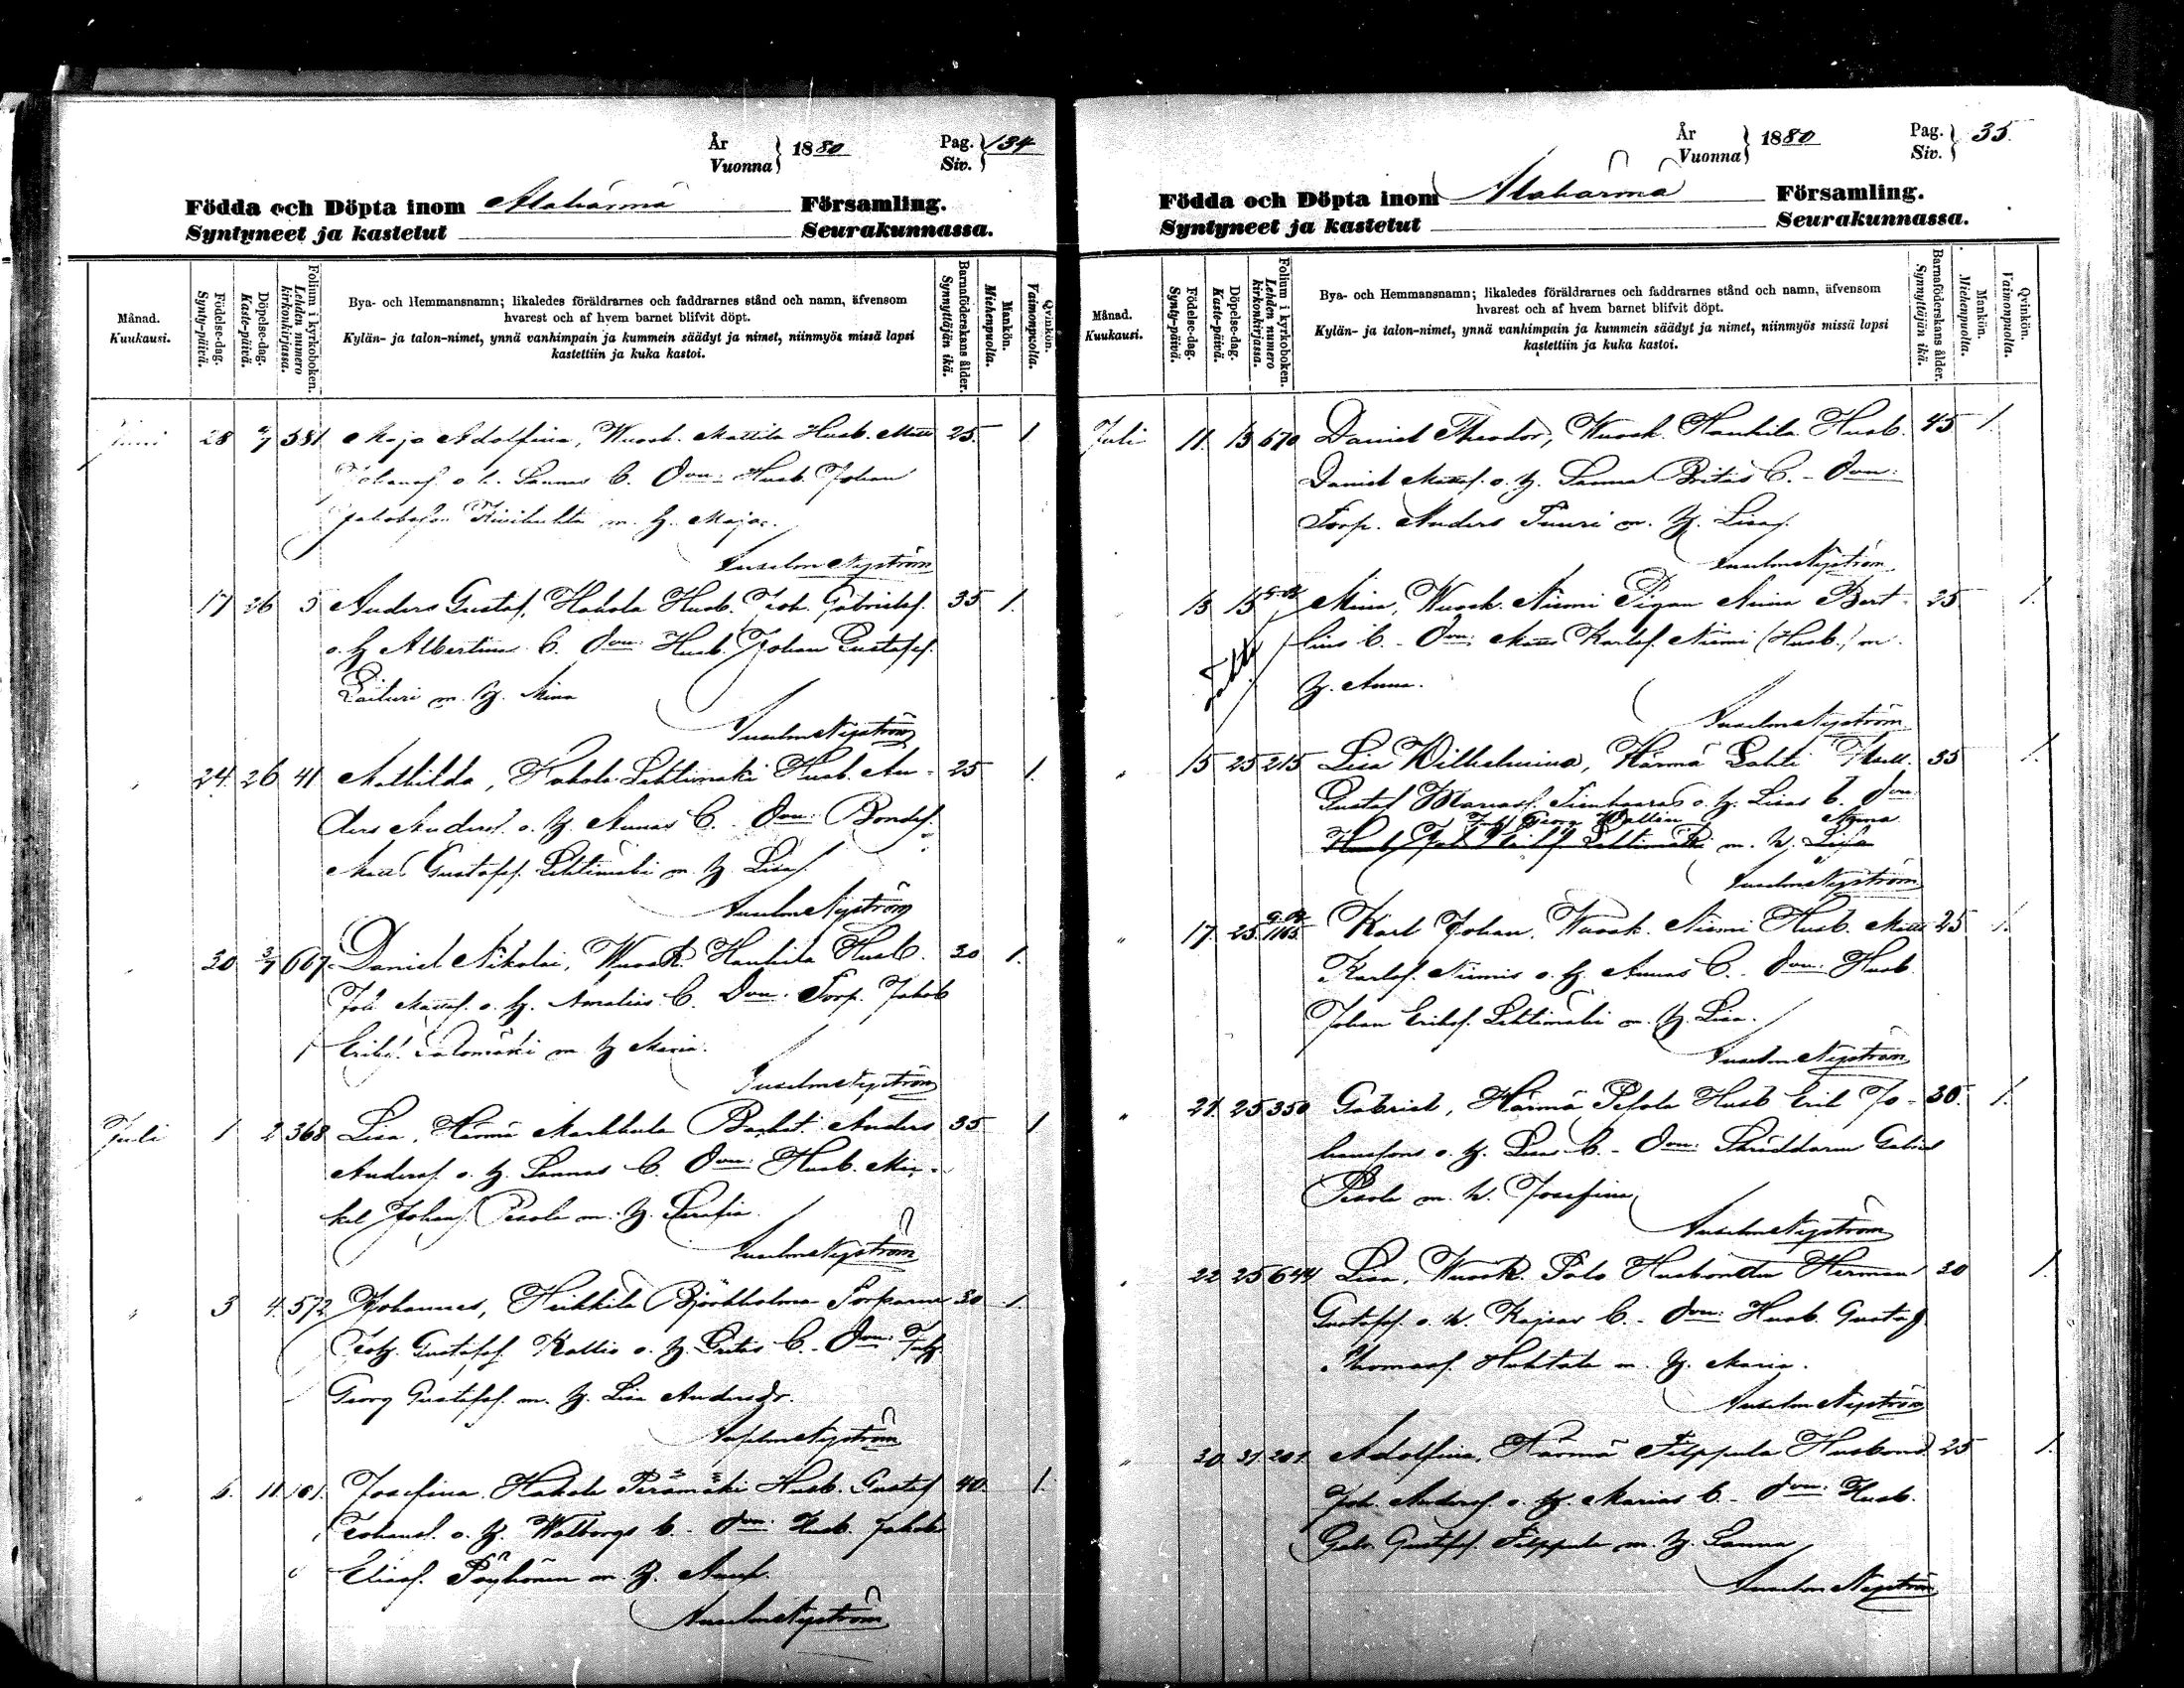 År
Vuonna } 1880
Pag.
Siv. } 134
Födda och Döpta inom Alahärmä Församling.
Syntyneet ja kastetut Seurakunnassa.
Månad.
Kuukausi.
Födelse-dag.
Synty-päivä.
Döpelse-dag.
Kaste-päivä.
Folium i kyrkoboken.
Lehden numero kirkonkirjassa.
Bya- och Hemmansnamn; likaledes föräldrarnes och faddrarnes stånd och namn, äfvensom
hvarest och af hvem barnet blifvit döpt.
Kylän- ja talon-nimet, ynnä vanhimpain ja kummein säädyt ja nimet, niinmyös missä lapsi
kastettiin ja kuka kastoi.
Barnaföderskans ålder.
Synnyttäjän ikä.
Mankön.
Miehenpuolta.
Qvinkön.
Vaimonpuolta.
Juni 28 2/7 581 Maja Adolfina, Wuosk. Mattila Husb. Matts 25. 1
Johansf. o. h. Sannas b. Dvn: Husb. Johan
Jakobsson Kivihuhta m. h. Maja.
Anselm Nyström
17 26 5 Anders Gustaf, Hakola Husb. Joh. Gabrielsf. 35 1.
o. h. Albertinas b. Dvn: Husb. Johan Gustafsf.
m. h. Mina
Anselm Nyström
24. 26 41 Mathilda, Hakola Lehtimäki Husb. An- 25 1.
ders Andersf. o. h. Annas b. Dvn: Bondes.
Matts Gustafsf. Lehtimäki m. h. Lisa.
Anselm Nyström
30 3/7 607 Daniel Nikolai, Wuosk. Haukila Husb. 30 1.
Joh. Mattsf. o. h. Amalias b. Dvn: Torp. Jakob
Eriksf. Salomäki m. h. Maria.
Anselm Nyström
Juli 1 2 368 Lisa, Härmä Markkula Anders 35 1
Andersf. o. h. Sannas b. Dvn: Husb. Mic-
kel Johansf. Pesola m. h. Serafia.
Anselm Nyström
" 3 4. 572 Johannes, Heikkilä Björkholma Torparen 30 1.
Joh. Gustafsf. Kallio o. h. Gretas b. Dvn:
Georg Gustafsf. m. h. Lisa Andersdr.
Anselm Nyström
" 6. 11 101. Josefina, Hakola Perämäki Husb. Gustaf 40. 1.
Johansf. o. h. Walborgs b. Dvn: Husb. Jakob
Eliasf. Pöyhönen m. h. Anna.
Anselm Nyström
År
Vuonna } 1880
Pag.
Siv. } 35.
Födda och Döpta inom Alahärmä Församling.
Syntyneet ja kastetut Seurakunnassa.
Månad.
Kuukausi.
Födelse-dag.
Synty-päivä.
Döpelse-dag.
Kaste-päivä.
Folium i kyrkoboken.
Lehden numero kirkonkirjassa.
Bya- och Hemmansnamn; likaledes föräldrarnes och faddrarnes stånd och namn, äfvensom
hvarest och af hvem barnet blifvit döpt.
Kylän- ja talon-nimet, ynnä vanhimpain ja kummein säädyt ja nimet, niinmyös missä lapsi
kastettiin ja kuka kastoi.
Barnaföderskans ålder.
Synnyttäjän ikä.
Mankön.
Miehenpuolta.
Qvinkön.
Vaimonpuolta.
Juli 11. 13 670 Daniel Theodor, Wuosk. Haukila Husb. 45 1.
Daniel Mattsf. o. h. Sanna Britas b. - Dvn:
Torp. Anders Tuuri m. h. Lisa.
Anselm Nyström
13 15 Mina, Wuosk. Niemi Pigan Mina Bert- 25. 1.
lins b. - Dvn: Matts Karlsf. Niemi (Husb.) m.
h. Anna.
Anselm Nyström
" 15 25 215 Lisa Wilhelmina, Härmä Lahti 35 1.
Gustaf o. h. Lisas b. Dvn:
Georg Wallin Anna
Husb. Joh. Lehtimäki m. h. Lisa
Anselm Nyström
" 17 25. 1165. Karl Johan, Wuosk. Niemi Husb. Matts 25 1.
Karlsf. Niemis o. h. Annas b. - Dvn: Husb.
Johan Eriksf. Lehtimäki m. h. Lisa.
Anselm Nyström
" 21. 25 350 Gabriel, Härmä Pesola Husb Erik Jo- 30. 1.
hanssons o. h. Lisas b. - Dvn: Skräddaren Gabriel
Pesola m. h. Josefina
Anselm Nyström
" 22 25 644 Lisa, Wuosk. Palo Husbonden Herman 30 1.
Gustafsf. o. h. Kajsas b. - Dvn: Husb. Gustaf
Thomasf. Huhtala m. h. Maria.
Anselm Nyström
" 30 31. 201. Adolfina, Härmä Filppula Husbond. 25 1.
Joh. Andersf. o. h. Marias b. - Dvn: Husb.
Gabr. Gustafsf. Filppula m. h. Sanna
Anselm Nyström